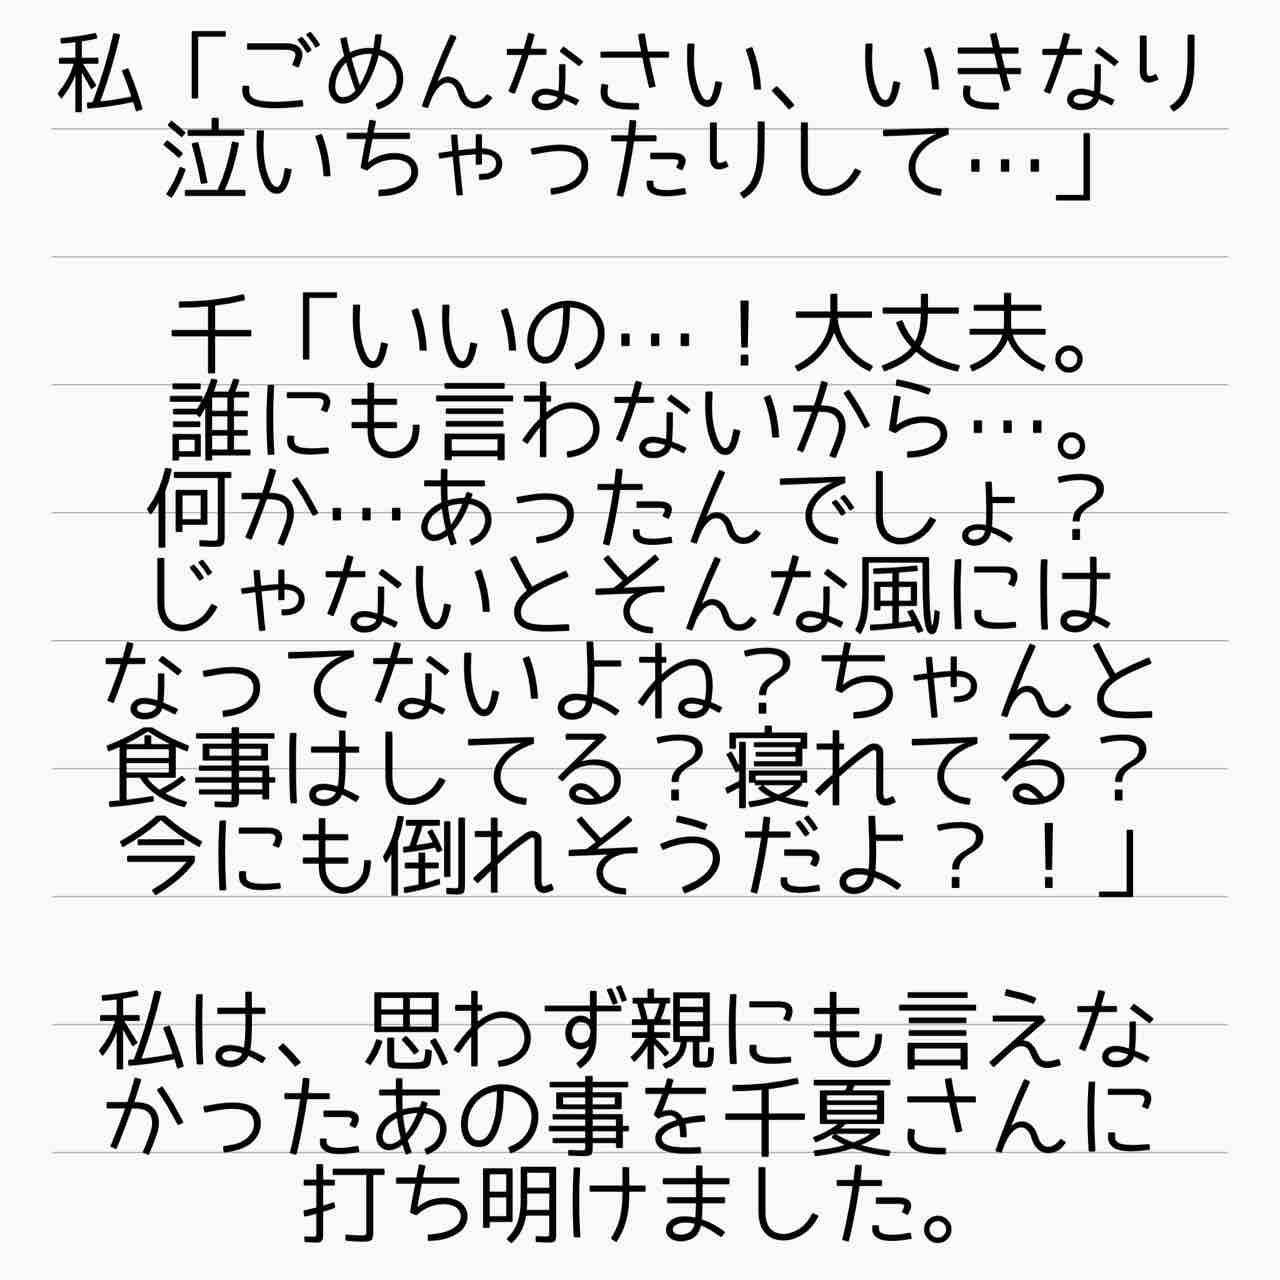 私「ごめんなさい、いきなり
泣いちゃったりして…」
千「いいの…！大丈夫。
誰にも言わないから…。
何か…あったんでしょ？
じゃないとそんな風には
なってないよね？ちゃんと
食事はしてる？寝れてる？
今にも倒れそうだよ？！」
私は、思わず親にも言えな
かったあの事を千夏さんに
打ち明けました。